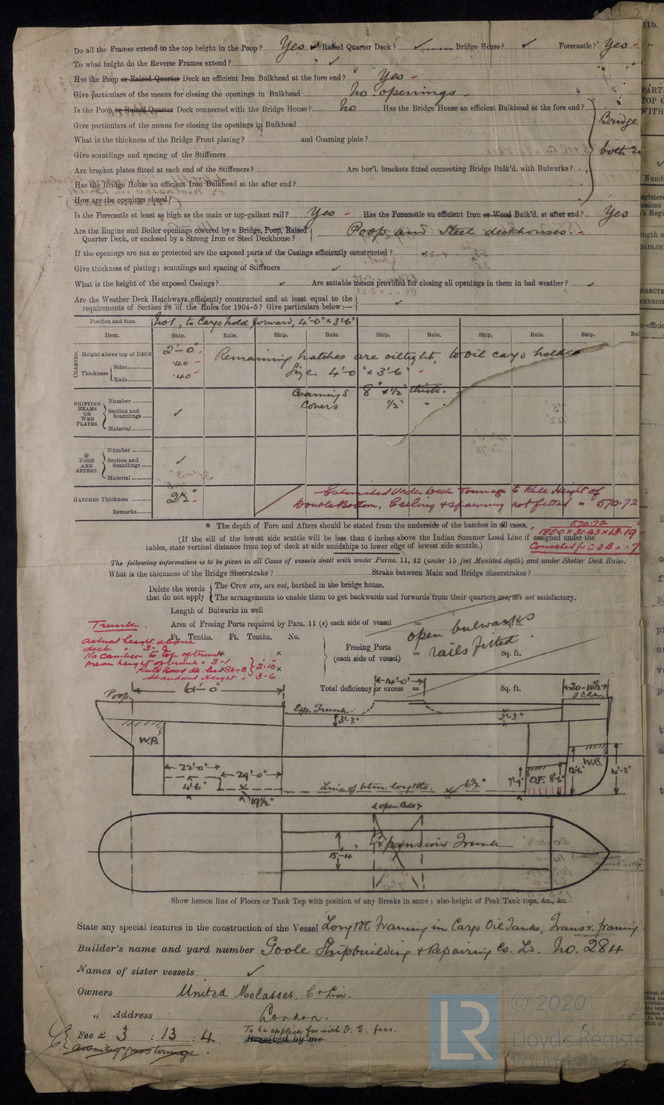 Do all the Frames extend to the top height in the Poop? Yes Raised Quarter Deck? ✓ Bridge House? ✓ Forecastle? Yes
To what height do the Reverse Frames extend? ✓
Has the Poop or Raised Quarter Deck an efficient Iron Bulkhead at the fore end? Yes
Give particulars of the means for closing the openings in Bulkhead no openings
Is the Poop or Raised Quarter Deck connected with the Bridge House? No Has the Bridge House an efficient Bulkhead at the fore end?
Bridge
Give particulars of the means for closing the openings in Bulkhead
What is the thickness of the Bridge Front plating? and Coaming plate?
both
Give scantlings and spacing of the Stiffeners
Are bracket plates fitted at each end of the Stiffeners? Are hor'l. brackets fitted connecting Bridge Bulk'd, with Bulwarks?
Has the Bridge House an efficient Iron Bulkhead at the after end?
How are the openings closed?
Is the Forecastle at least as high as the main or top-gallant rail? Yes Has the Forecastle an efficient Iron or Wood Bulk'd. at after end? Yes
Are the Engine and Boiler openings covered by a Bridge, Poop, Raised Quarter Deck, or enclosed by a Strong Iron or Steel Deckhouse? Poop and Steel deckhouses
If the openings are not so protected are the exposed parts of the Casings efficiently constructed?
Give thickness of plating; scantlings and spacing of Stiffeners ✓
What is the height of the exposed Casings? ✓ Are suitable means provided for closing all openings in them in bad weather? ✓
Are the Weather Deck Hatchways efficiently constructed and at least equal to the requirements of Section 28 of the Rules for 1904-5? Give particulars below:— ✓
Position and Size. No 1, to Cargo hold forward, 4'-0" x 3'-6"
Item. Ship. Rule. Ship. Rule. Ship. Rule. Ship. Rule. Ship. Rule.
COAMING. Height above top of DECK 2'-0" Remaining hatches are oiltight, to oil cargo holds
Thickness Sides ·40 Size 4'-0" x 3'-6"
Ends ·40
Coamings 8" x 1/2" thick
SHIFTING BEAMS OR WEB PLATES. Number Covers 1/2" "
Section and Scantlings ✓
Material
* FORE AND AFTERS. Number
Section and Scantlings ✓
Material
HATCHES Thickness 2½" Estimated Under Deck Tonnage to Rule Height of
Remarks Double Bottom, Ceiling & sparring not fitted = 670.72
* The depth of Fore and Afters should be stated from the underside of the hatches in all cases.
(If the sill of the lowest side scuttle will be less than 6 inches above the Indian Summer Load Line if assigned under the
tables, state vertical distance from top of deck at side amidships to lower edge of lowest side scuttle.)
The following information is to be given in all Cases of Vessels dealt with under Paras. 11, 12 (under 15 feet Moulded depth) and under Shelter Deck Rules.
What is the thickness of the Bridge Sheerstrake? Strake between Main and Bridge Sheerstrakes?
Delete the words that do not apply The Crew are, are not, berthed in the bridge house.
The arrangements to enable them to get backwards and forwards from their quarters are, are not satisfactory.
Length of Bulwarks in well
Trunk. Area of Freeing Ports required by Para. 11 (e) each side of vessel = Sq. ft.
Ft. Tenths. Ft. Tenths. No. open bulwarks
actual height above deck = 3-3
No camber to top of trunk x x Freeing Ports (each side of vessel) = rails fitted Sq. ft.
mean height of trunk = 3-1
Standard Height = 3-6
Total deficiency or excess = Sq. ft.
Poop. 61'-0" 14'-0" 20'-10½"
Exp. Trunk 3'-3" 3'-3"
W.B.
22'-0" 29'-0" O.F. 8'-6" W.B.
4'-6" 19½" Line of btm. longtls. 6½" 7'-9"
open Bdge
15-4 Expansion Trunk
Show hereon line of Floors or Tank Top with position of any Breaks in same; also height of Peak Tank tops, &c., &c.
State any special features in the construction of the Vessel Longtl Framing in Cargo Oil Tanks, Transv. framing
Builder's name and yard number Goole Shipbuilding & Repairing Co. Ld. No. 284
Names of sister vessels ✓
Owners United Molasses Co Lim.
„ Address London.
Fee £ 3 : 13 : 4 To be applied for with D. E. fees.
Received by me
© 2020
LR Lloyd's Register
Foundation